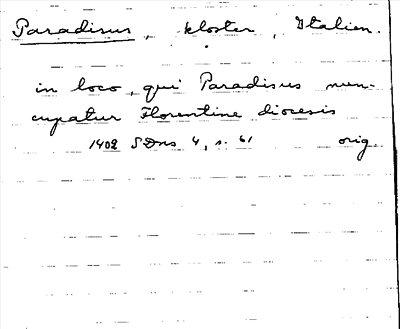 Paradisus, kloster, Italien.
in loco, qui Paradisus nun-
cupatur Florentine diocesis
1402 SDns 4, s. 61 orig.